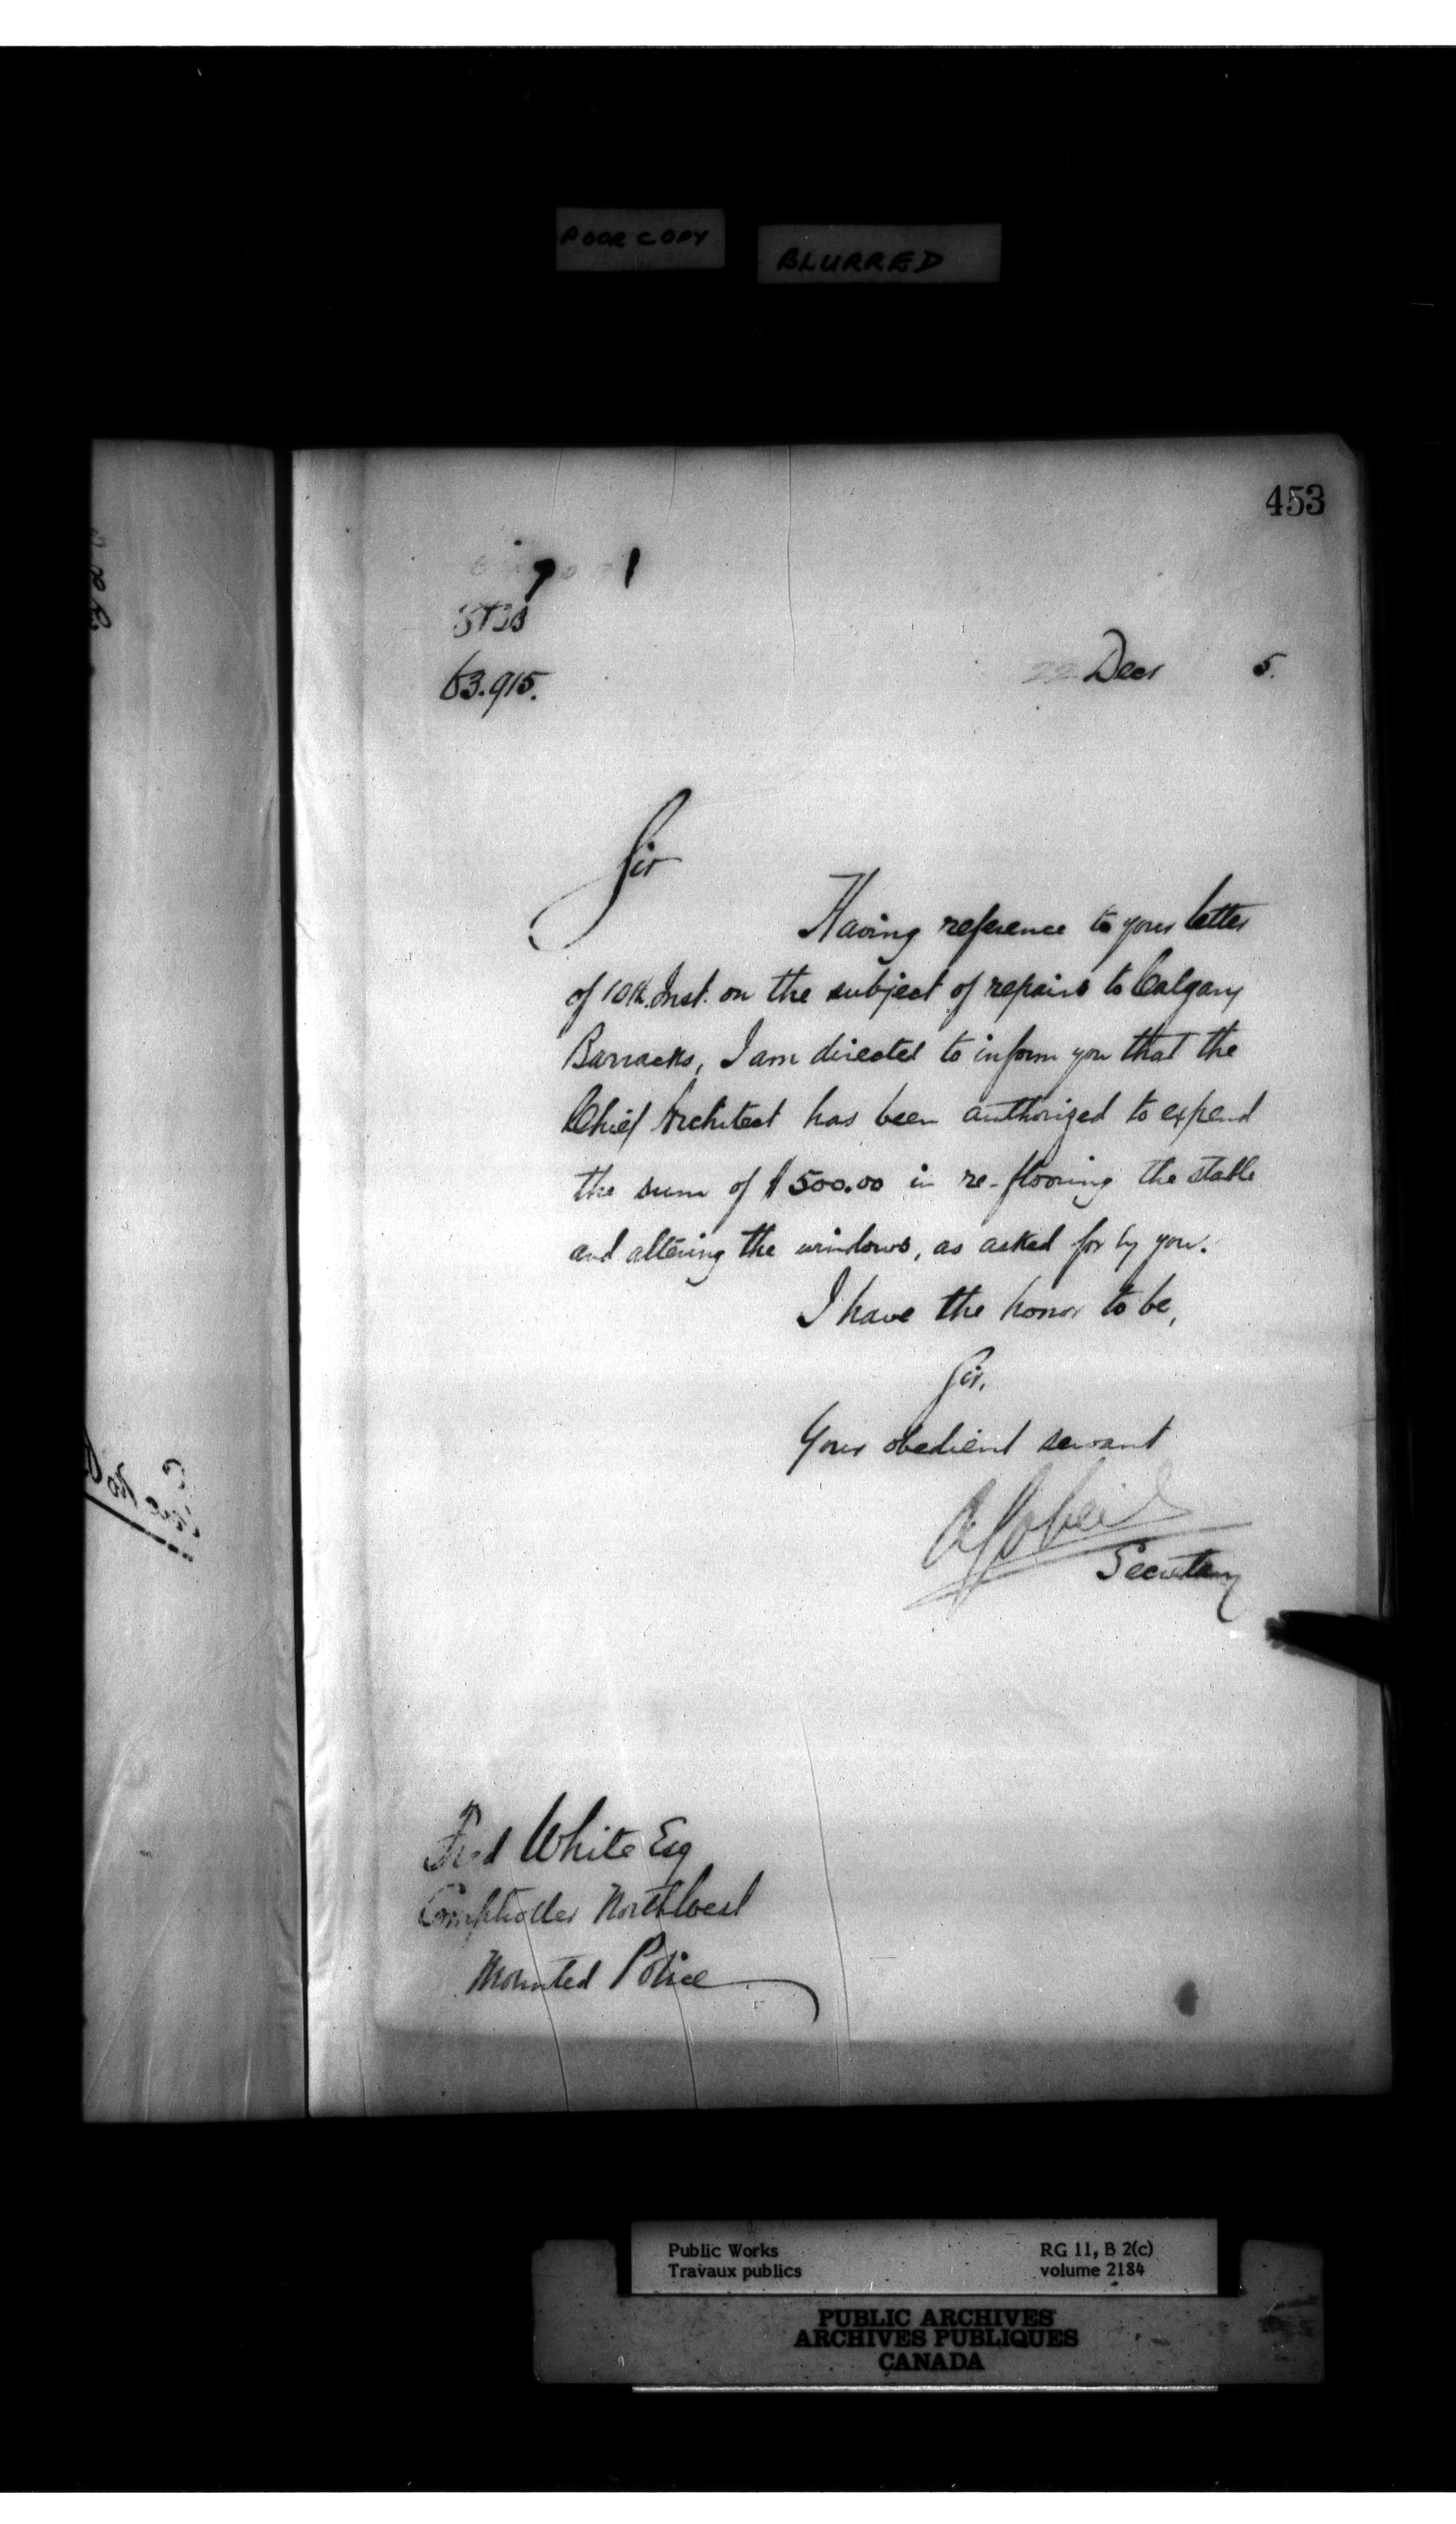 POOR COPY
BLURRED
453
63.915.
22 Decr 5.
Sir
Having reference to your letter
of 10th. Inst. on the subject of repairs to Calgary
Barracks, I am directed to inform you that the
Chief Architect has been authorized to expend
the sum of $500.00 in re-flooring the stable
and altering the windows, as asked for by you.
I have the honor to be,
Sir,
Your obedient servant
A Gobeil
Secretary
Fred White Esq
Comptroller North West
Mounted Police
Public Works
Travaux publics
RG 11, B 2(c)
volume 2184
PUBLIC ARCHIVES
ARCHIVES PUBLIQUES
CANADA